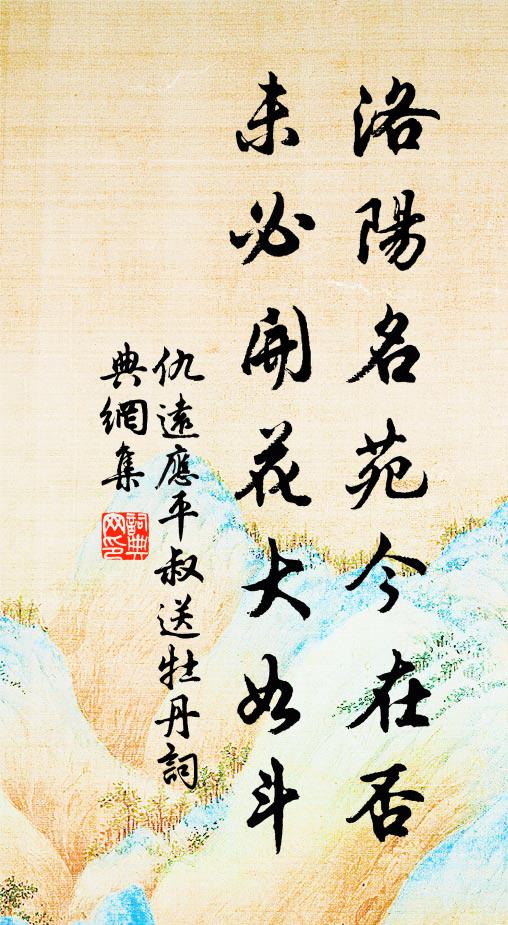 洛陽名苑今在否
未必開花大如斗
仇遠應平叔送牡丹詞
典網集
詞典网印